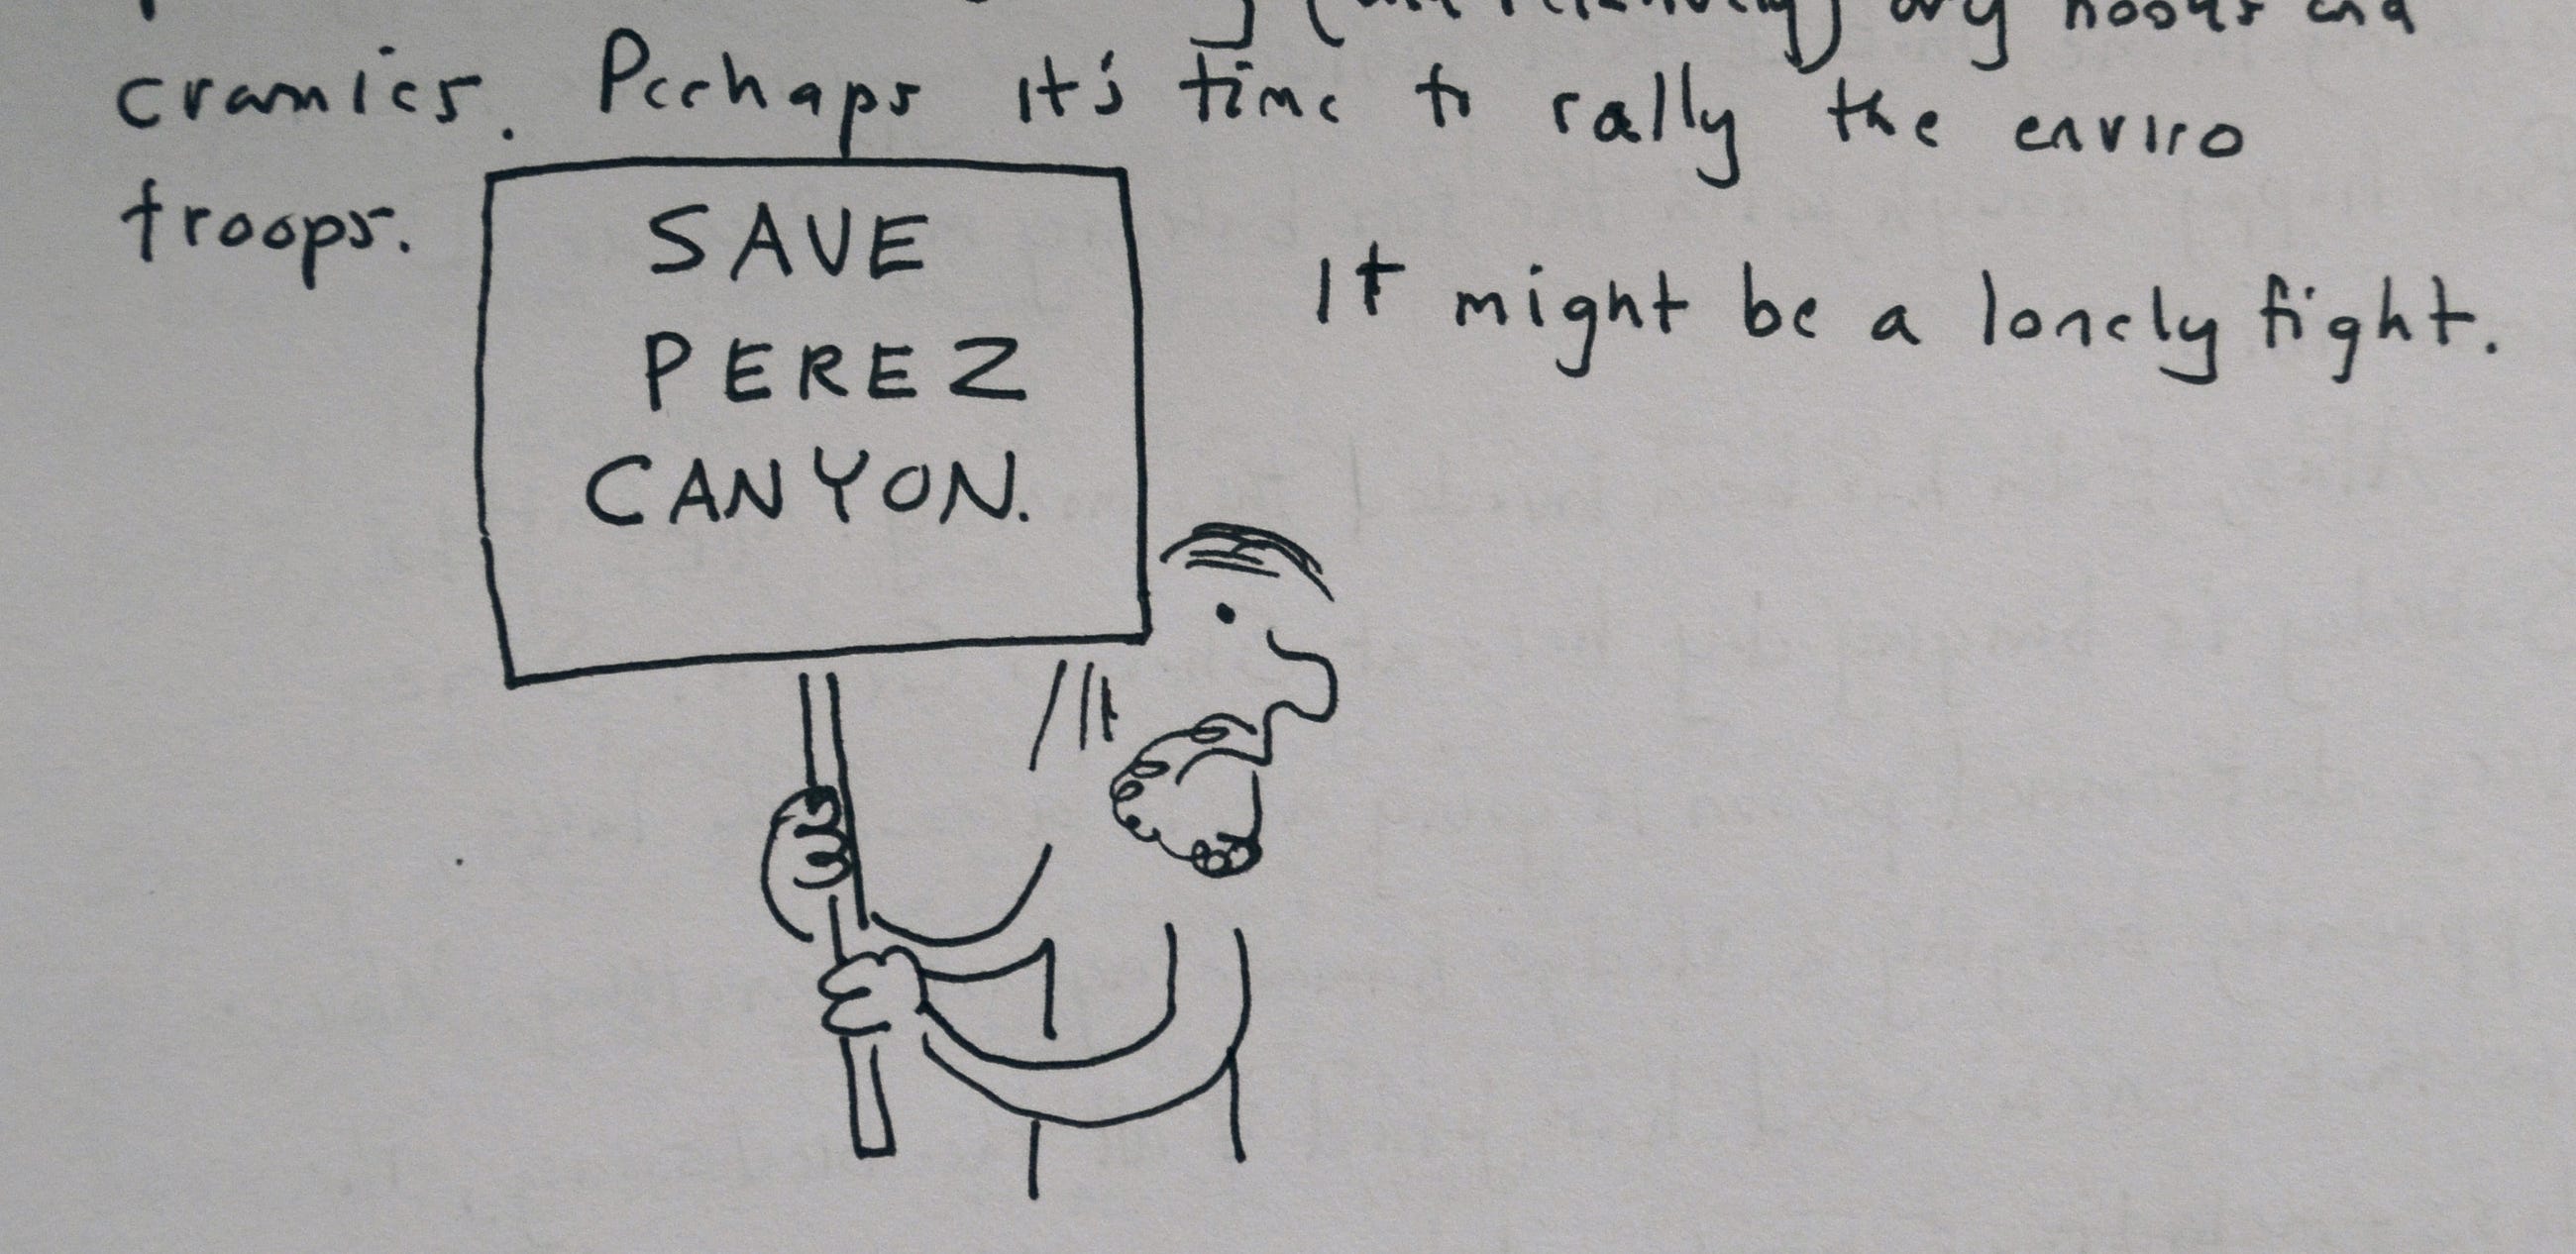 (and relatively) dry nooks and
crannies. Perhaps it's time to rally the enviro
troops.
SAVE
PEREZ
CANYON.
It might be a lonely fight.